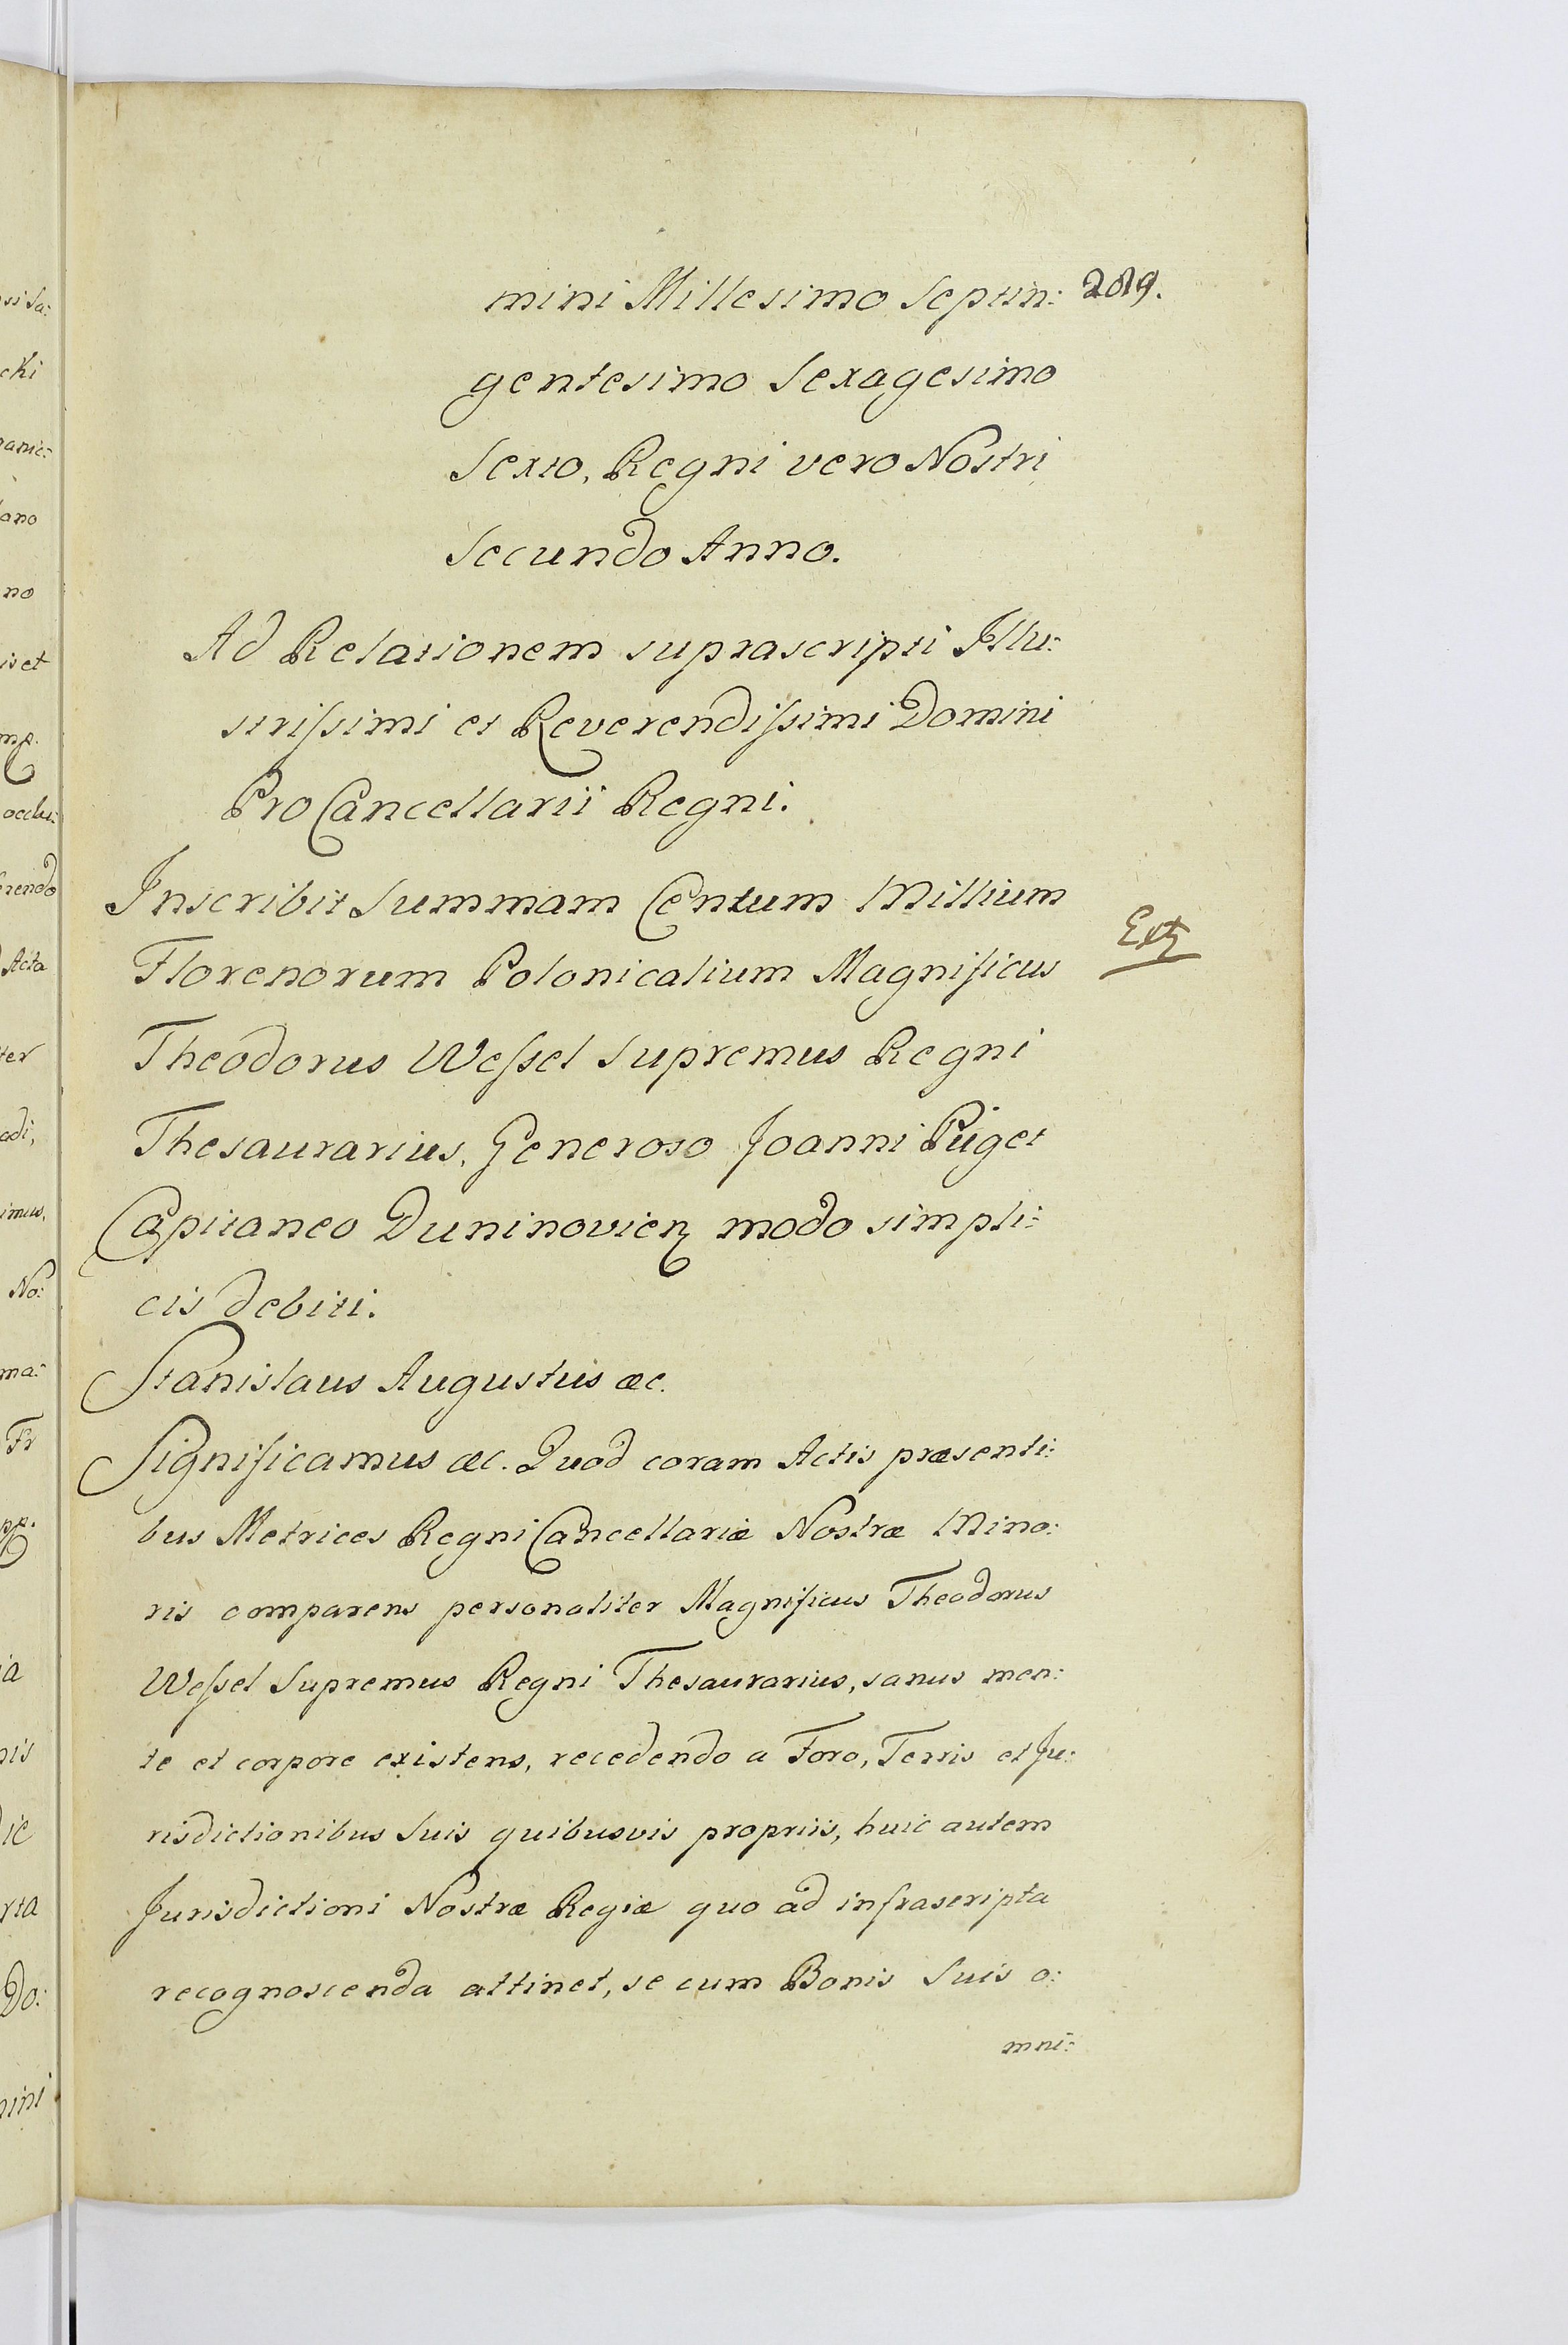 mini Millesimo Septin: 289.
gentesimo Sexagesimo
Sexto, Regni vero Nostri
Secundo Anno.
Ad Relationem suprascripti Illu:
strissimi et Reverendissimi Domini
Pro Cancellarii Regni.
Inscribit Summam Centum Millium
Florenorum Polonicalium Magnificus
Theodorus Wessel Supremus Regni
Thesaurarius, Generoso Joanni Puget
Capitaneo Duninovien modo simpli:
cis debiti.
Stanislaus Augustus æc.
Significamus æc. Quod coram Actis præsenti:
bus Metrices Regni Cancellariæ Nostræ Mino:
ris comparens personaliter Magnificus Theodorus
Wessel Supremus Regni Thesaurarius, sanus men:
te et corpore existens, recedendo a Foro, Terris et Ju:
risdictionibus Suis quibusvis propriis, huic autem
Jurisdictioni Nostræ Regiæ quo ad infrascripta
recognoscenda attinet, se cum Bonis Suis o:
mni: